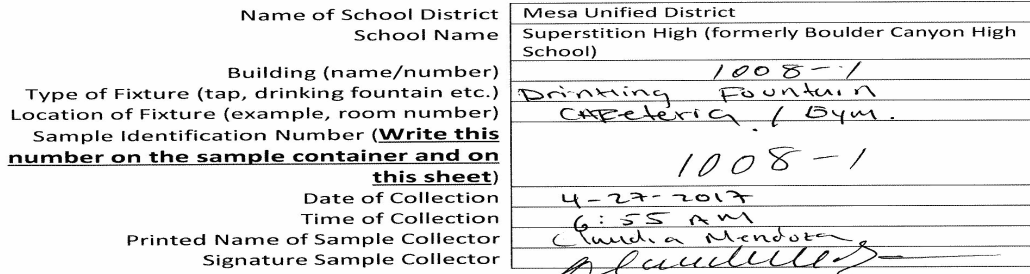 Name of School District Mesa Unified District
School Name Superstition High (formerly Boulder Canyon High
School)
Building (name/number) 1008-1
Type of Fixture (tap, drinking fountain etc.) Drinking Fountain
Location of Fixture (example, room number) CAFeteria / Gym.
Sample Identification Number (Write this
number on the sample container and on
this sheet) 1008-1
Date of Collection 4-27-2017
Time of Collection 6:55 AM
Printed Name of Sample Collector Claudia Mendoza
Signature Sample Collector